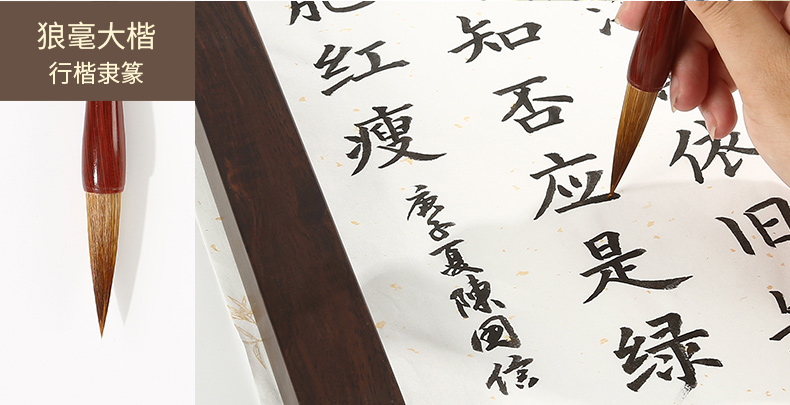 狼毫大楷
行楷隶篆
依旧
知否应是绿
肥红瘦
庚子夏陳国信